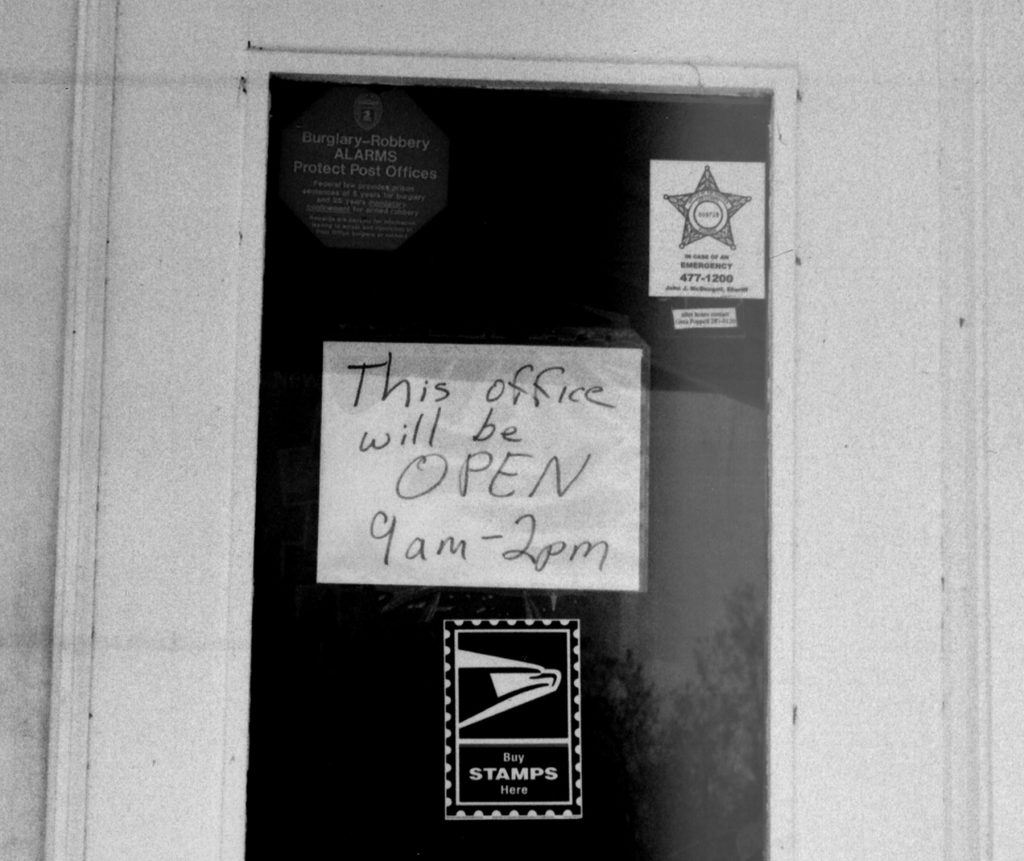 Burglary-Robbery
ALARMS
Protect Post Offices
Federal law provides prison
sentences of 5 years for burglary
and 25 years mandatory
confinement for armed robbery
IN CASE OF AN
EMERGENCY
477-1200
John J. McDougall, Sheriff
after hours contact
This office
will be
OPEN
9am-2pm
Buy
STAMPS
Here